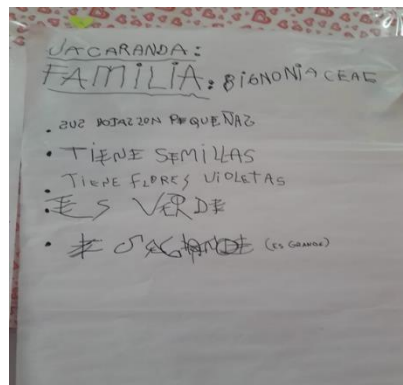 JACARANDA:
FAMILIA: BIGNONIACEAE
• SUS HOJAS SON PEQUEÑAS
• TIENE SEMILLAS
• TIENE FLORES VIOLETAS
• ES VERDE
• (ES GRANDE)